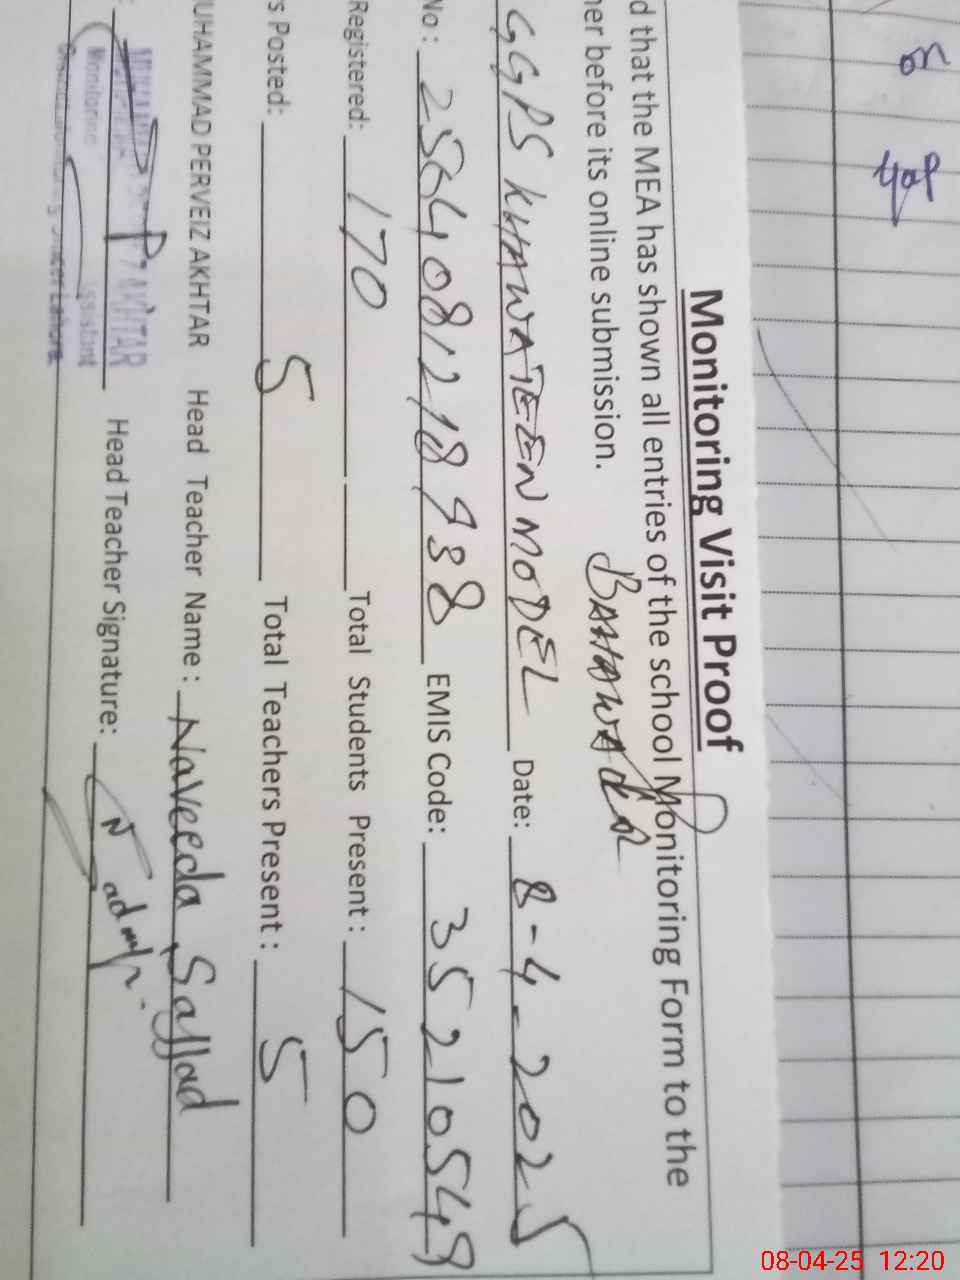 Monitoring Visit Proof
d that the MEA has shown all entries of the school Monitoring Form to the
her before its online submission.
GGPS KHAWATEEN MODEL Date: 8-4-2025
No: EMIS Code: 35210549
Registered: 170 Total Students Present: 150
s Posted: 5 Total Teachers Present: 5
UHAMMAD PERVEIZ AKHTAR Head Teacher Name: Naveeda Sajjad
Head Teacher Signature:
AKHTAR
Monitoring Assistant
08-04-25 12:20